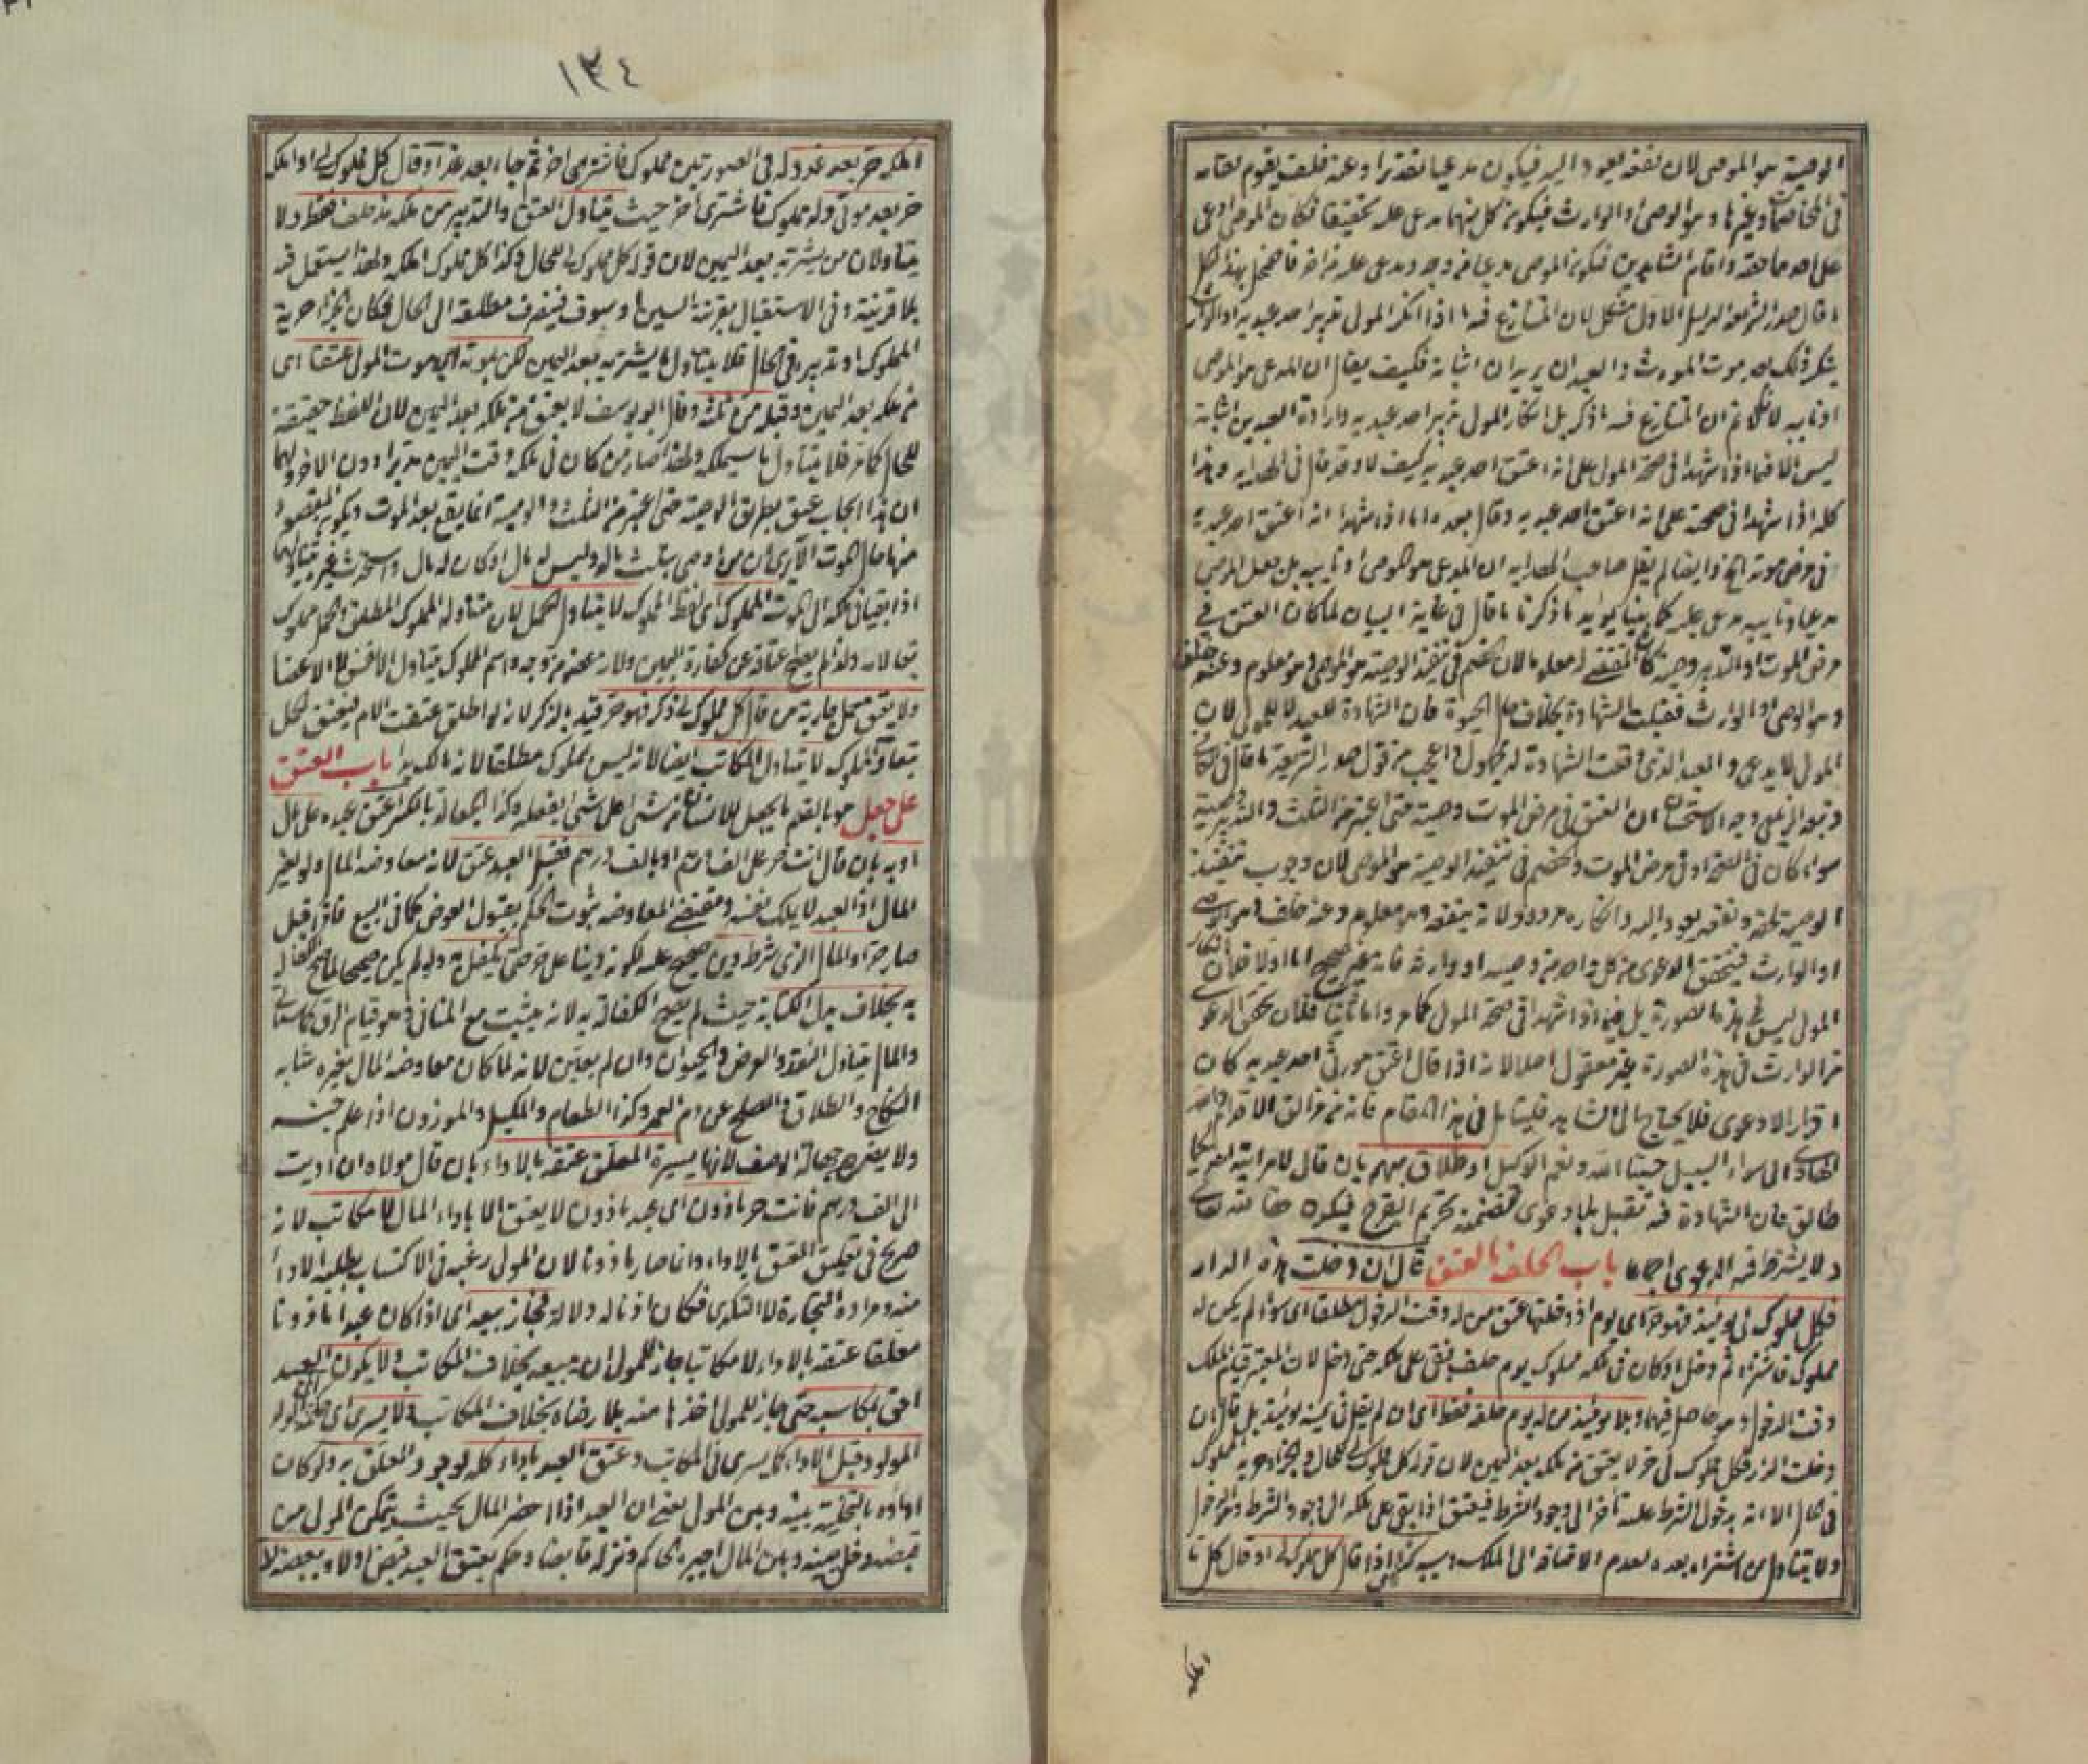 الوصية هو الموصى لان نفعه يعود اليه فيكون مدعيا تقديرا وعنه خلف يقوم مقامه
في وغيرها وهو الوصى او الوارث فيكون كل منهما مدعى عليه تحقيقا فكان الموصى ادعى
على احد حقه واقام الشاهدين فيكون الموصى مدعيا من وجه ومدعى عليه من اخر فاضمحل بهذا
ما قال صدر الشريعة الدليل الاول مشكل لان المتنازع فيه ما اذا انكر المولى تدبير احد عبديه او الوارث
ينكر ذلك بعد موت المورث والعبدان يريدان اثباته فكيف يقال ان المدعى هو الموصى
او نايبه لانا لا نم ان المتنازع فيه ما ذكر بل انكار المولى تدبير احد عبديه وارادة العبدين اثباته
ليس الا فيما اذا شهدا في صحة المولى على انه اعتق احد عبديه كيف لا وقد قال في الهداية وهذا
كله اذا شهدا في صحته على انه اعتق احد عبديه وقال بعده اما اذا شهدا انه اعتق احد عبديه
في مرض موته الخ وايضا لم يقل صاحب الهداية ان المدعى هو الموصى او نايبه بل جعل الموصى
مدعيا ونايبه مدعى عليه كما بينا يؤيد ما ذكرنا ما قال في غاية البيان لما كان العتق في
مرض الموت او التدبير وصية كان المقضى له معلوما لان الخصم في تنفيذ الوصية هو الموصى وهو معلوم وعنه خلف
وهو الوصى او الوارث فقبلت الشهادة بخلاف حال الحيوة فان الشهادة للعبد لا للمولى لان
المولى لا يدعى والعبد الذى وقعت الشهادة له مجهول واعجب من قول صدر الشريعة ما قال في
الزيلعي وجه الاستحسان ان العتق في مرض الموت وصية حتى اعتبر من الثلث والتدبير وصية
سواء كان في الصحة او في مرض الموت والخصم في تنفيذ الوصية هو الموصى لان وجوب تنفيذ
الوصية لحقه ونفعه يعود اليه وانكاره مردود لانه يتفقه وهو معلوم وعنه خلف وهو الوصى
او الوارث فيتحقق الدعوى من كل واحد من وصيه او وارثه فانه غير صحيح اما اولا فلان انكار
المولى ليس في هذه الصورة بل فيما اذا شهدا في صحة المولى كما مر واما ثانيا فلان تحقق الدعوى
من الوارث في هذه الصورة غير معقول اصلا لانه اذا قال اعتق مورثى احد عبديه كان
اقرارا لا دعوى فلا يحتاج الى الشاهد فليتأمل في هذا المقام فانه من مزالق الاقدام والله
الهادى الى سواء السبيل حسبنا الله ونعم الوكيل او طلاق مبهم بان قال لامرأتيه احديكما
طالق فان الشهادة فيه تقبل بلا دعوى لتضمنه تحريم الفرج فيكون حقا لله تعالى
ولا يشترط فيه الدعوى اجماعا باب الحلف بالعتق قال ان دخلت هذه الدار
فكل مملوك لى يومئذ فهو حر اى يوم اذ دخلتها عتق من له وقت الدخول مطلقا اى سواء لم يكن له
مملوك فاشتراه ثم دخل او كان في ملكه مملوك يوم حلف فبقى على ملكه حتى دخل لان المعتبر قيام الملك
وقت الدخول وهو حاصل فيهما وبلا يومئذ من له يوم حلفه فقط اى ان لم يقل في يمينه يومئذ بل قال ان
دخلت الدار فكل مملوك لى حر لا يعتق من ملكه بعد اليمين لان قوله كل مملوك لى للحال والجزاء حرية المملوك
في الحال الا انه بدخول الشرط عليه تأخر الى وجود الشرط فيعتق اذا بقى على ملكه الى وجود الشرط وهو الدخول
ولا يتناول من اشتراه بعده لعدم الاضافة الى الملك وسببه كذا اذا قال كل مملوك لى او قال كل ما
املكه
١٣٤
املكه حر بعد غد وله في الصورتين مملوك فاشترى اخر ثم جاء بعد غد او قال كل مملوك لى او املكه
حر بعد موتى وله مملوك فاشترى اخر حيث يتناول العتق والتدبير من ملكه مذ حلف فقط ولا
يتناولان من يشتريه بعد اليمين لان قوله كل مملوك لى للحال وكذا كل مملوك املكه ولهذا يستعمل فيه
بلا قرينة وفى الاستقبال بقرينة السين او سوف فينصرف مطلقه الى الحال فكان الجزاء حرية
المملوك او تدبيره في الحال فلا يتناول ما يشتريه بعد اليمين لكن بموته اى بموت المولى عتقا اى
من ملكه بعد اليمين وقبله من ثلثه وقال ابو يوسف لا يعتق من ملكه بعد اليمين لان اللفظ حقيقة
للحال كما مر فلا يتناول ما سيملكه ولهذا صار من كان في ملكه وقت اليمين مدبرا دون الاخر ولهما
ان هذا ايجاب عتق بطريق الوصية حتى اعتبر من الثلث والوصية انما يقع بعد الموت المقصود
منها حال الموت الا يرى ان من اوصى بثلث ماله وليس له مال او كان له مال واستحدث غيره يتناولهما
اذا بقيا في ملكه الى الموت المملوك اى لفظ المملوك لا يتناول الحمل لان متناوله المملوك المطلق والحمل مملوك
تبعا لامه ولهذا لم يصح عتاقه عن كفارة اليمين ولانه عضو من وجه واسم المملوك يتناول الانفس لا الاعضا
ولا يعتق حمل جارية من قال كل مملوك لى ذكر فهو حر قيد بالذكر لانه لو اطلق عتقت الام فيعتق الحمل
تبعا والمملوك لا يتناول المكاتب ايضا لانه ليس بمملوك مطلقا لانه مالك يدا باب العتق
على جعل هو بالضم ما يجعل للانسان من شئ على شئ يفعله وكذا الجعالة بالكسر اعتق عبده على مال
او به بان قال انت حر على الف درهم او بالف درهم فقبل العبد عتق لانه معاوضة المال ولو بغير
المال اذ العبد لا يملك نفسه ومقتضى المعاوضة ثبوت الحكم بقبول العوض كما في البيع فاذا قبل
صار حرا والمال الذى شرط دين صحيح عليه لكونه دينا على حر حتى يكفل به ولو لم يكن صحيحا لما صح الكفالة
به بخلاف بدل الكتابة حيث لم يصح الكفالة به لانه يثبت مع المنافى وهو قيام الرق كما سيأتى
والمال يتناول النقد والعرض والحيوان وان لم يعين لانه لما كان معاوضة المال بغيره شابه
النكاح والطلاق والصلح عن دم العمد وكذا الطعام والمكيل والموزون اذا علم جنسه
ولا يضره جهالة الوصف لانها يسيرة المعلق عتقه بالاداء بان قال مولاه ان اديت
الى الف درهم فانت حر ماذون اى عبد ماذون لا يعتق الا باداء المال لا مكاتب لانه
صريح في تعليق العتق بالاداء وانما صار ماذونا لان المولى رغبه في الاكتساب بطلبه الاداء
منه ومراده التجارة لا التكدى فكان اذنا له دلالة فجاز بيعه اى اذا كان عبدا ماذونا
معلقا عتقه بالاداء لا مكاتبا جاز للمولى ان يبيعه بخلاف المكاتب ولا يكون العبد
احق بمكاسبه حتى جاز للمولى اخذها منه بلا رضاه بخلاف المكاتب ولا يسرى اى الى ولده
المولود قبل الاداء كما يسرى في المكاتب وعتق العبد باداء كله لوجود المعلق به ولو كان
اداؤه بالتخلية بينه وبين المولى يعنى ان العبد اذا احضر المال بحيث يتمكن المولى من
قبضه وخلى بينه وبين المال اجبره الحاكم ونزله قابضا وحكم بعتق العبد قبض اولا وببعضه لا